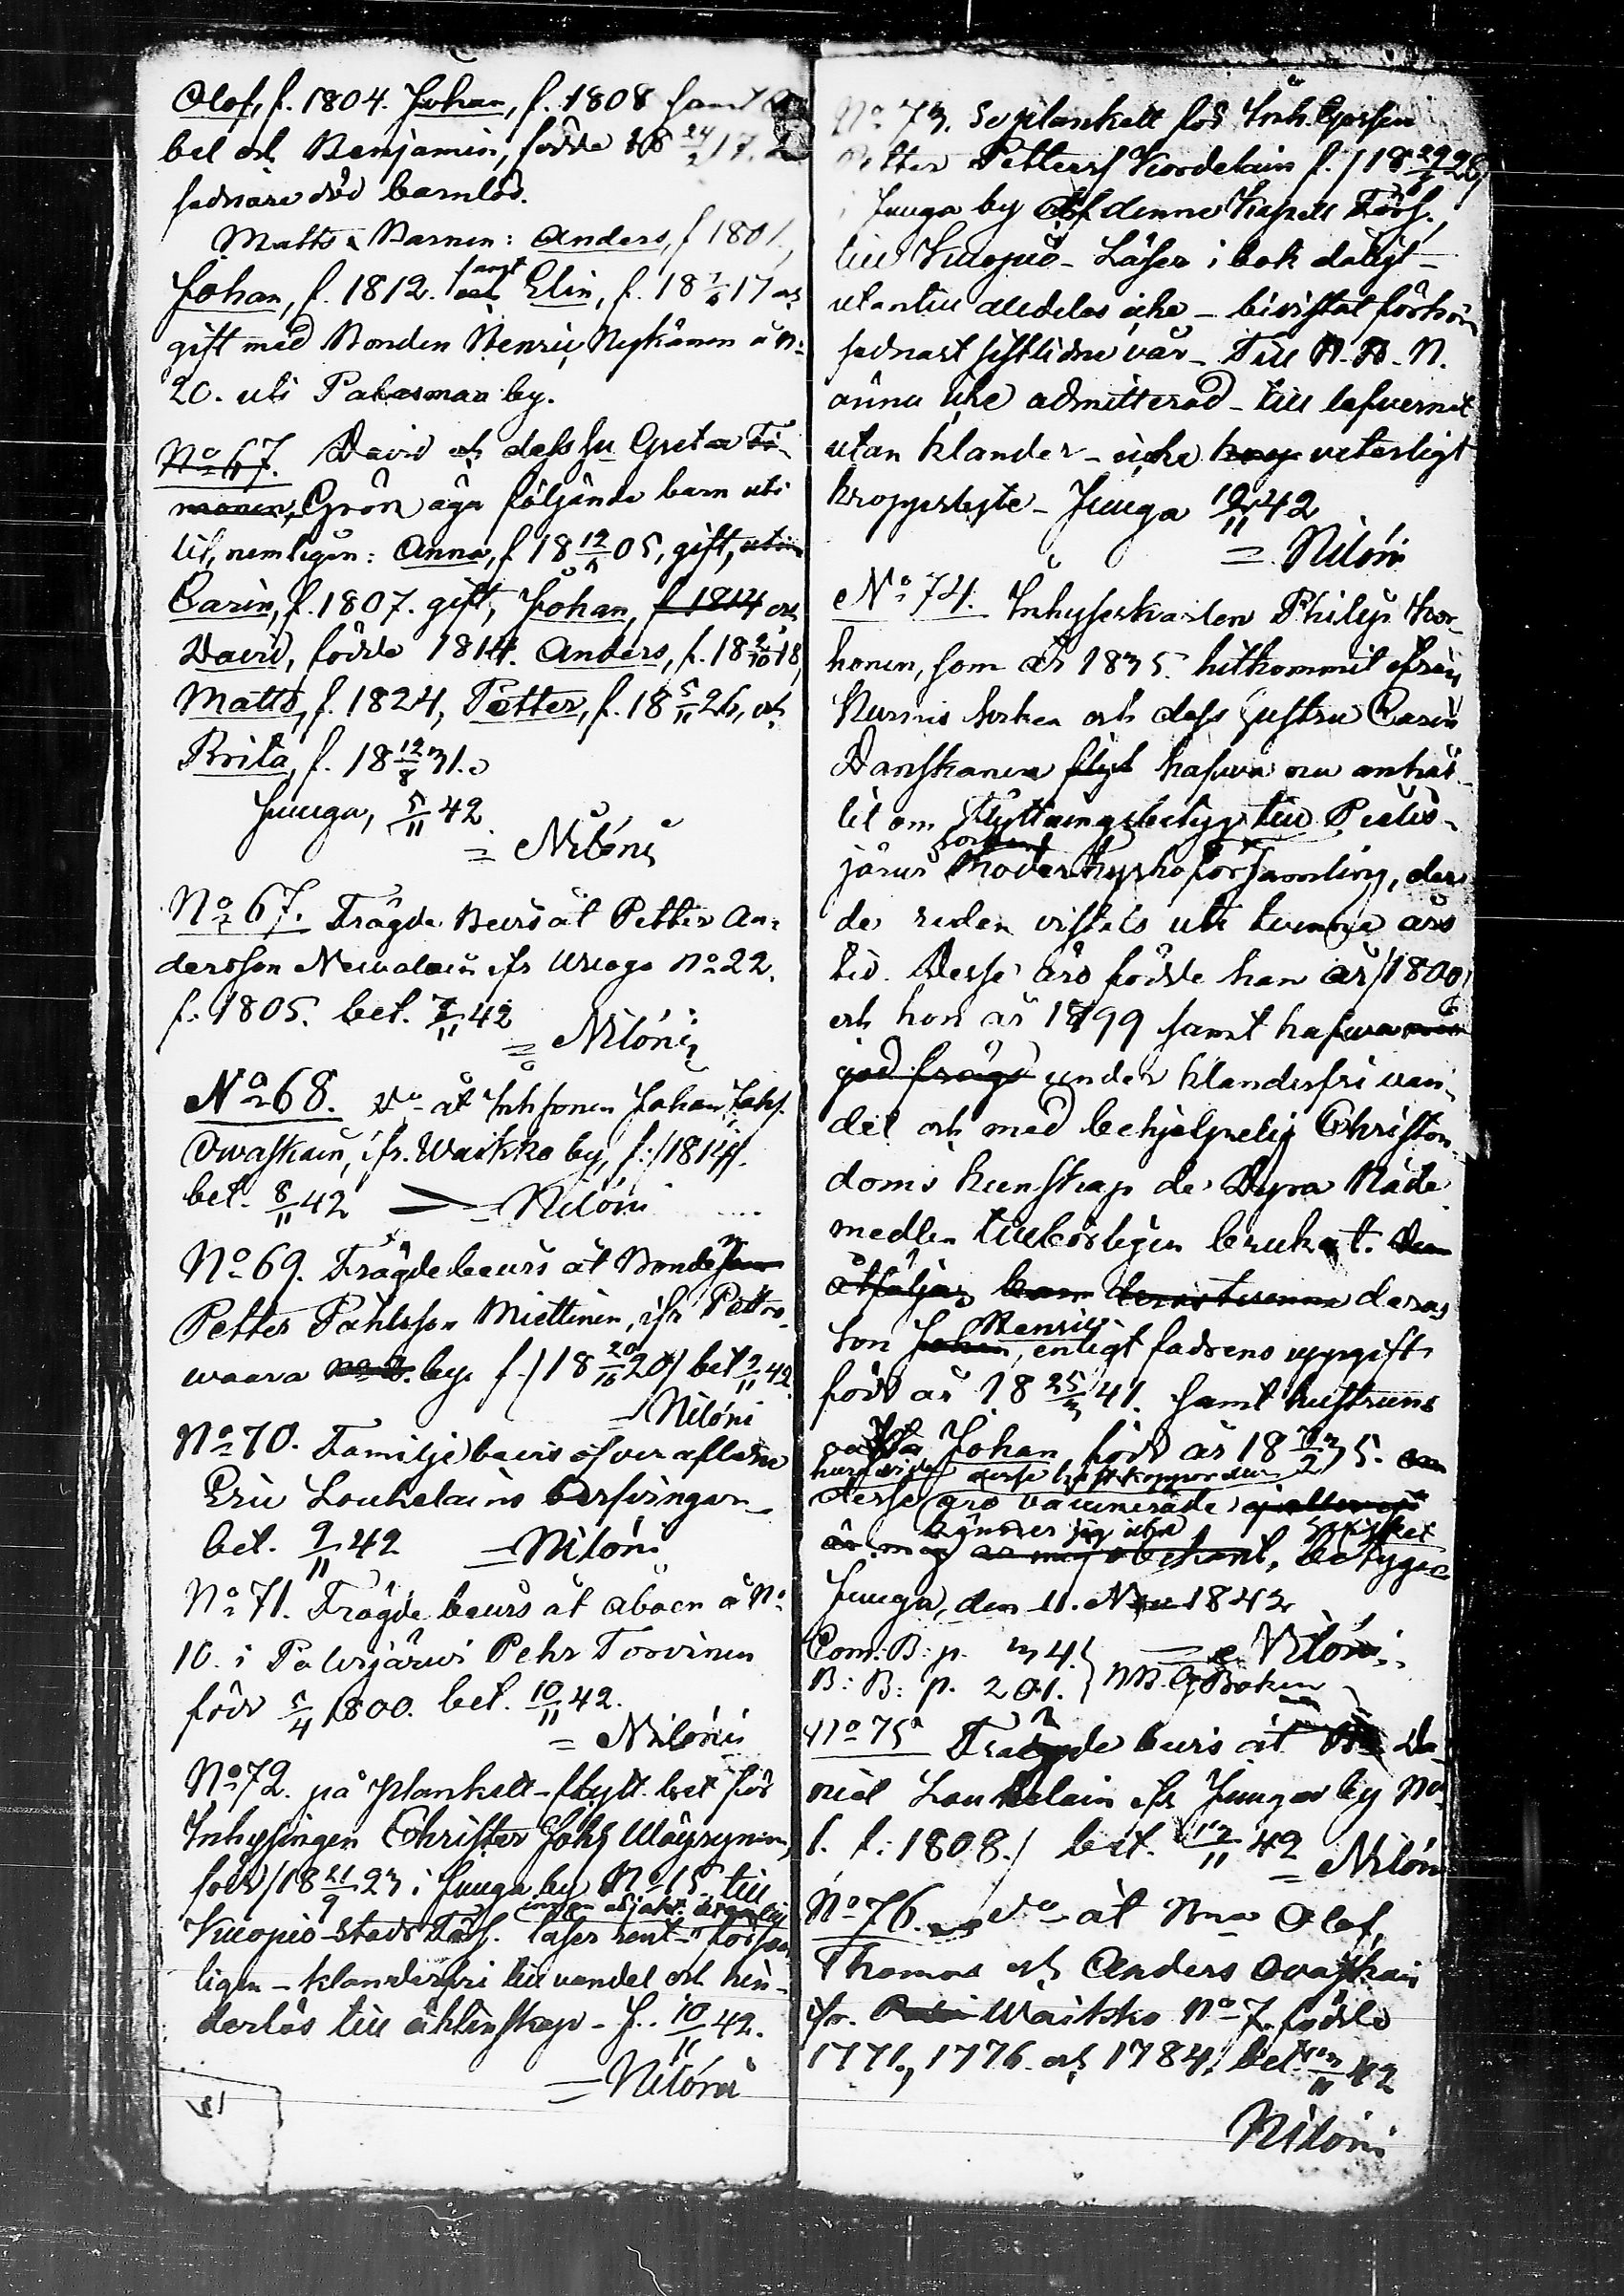 Olof, f. 1804. Johan, f. 1808 samt A
bel och Benjamin, födde 18 24/2 17.
sednare död barnlös.
Matts Barnen: Anders, f 1801,
Johan, f. 1812. samt Elin, f. 18 17 och
gift med Bonden Henric Nykänen å N:
20. uti Pakasmaa by.
No 67. David och dess hu Greta Ti-
monen, Grön äga följande barn uti
lif, nemligen: Anna, f 18 12 05, gift,
Carin, f. 1807. gift, Johan, f 1814 och
David, födde 1814. Anders, f. 18 2/10 18,
Matts, f. 1824, Petter, f. 18 5/11 26, och
Brita, f. 18 12/8 31.
Juuga, 5/11 42
= Nilóni
No 67. Frägde bevis åt Petter An-
dersson Nevalain ifr No 22.
f. 1805. bet. 7/11 42
= Nilóni
No 68. Do åt Inh sonen Johan Johs.
Ovaskain, ifr. Waikko by, f:/1814/.
bet. 8/11 42 = Nilóni
No 69. Frägdebevis åt Bonde
Petter Påhlsson Miettinen, ifr Petro-
waara by f./18 20/10 20/ bet 9/11 42.
= Nilóni
No 70. Familje bevis öfver aflidne
Eric Loukelains
bet. 9/11 42 = Nilóni
No 71. Frägde bevis åt åboen å No
10. i Polvijärvi Pehr Torvinen
född 5/4 1800. bet. 10/11 42.
= Nilóni
No 72. på plankett-flytt. bet för
Inhysingen Christer Johs Wäyrynen,
född/18 21/9 23 i Juuga by No 15 till
Kuopio stads Förs. läser rent
ligen - klanderfri till vandel och hin-
derlös till äktenskap - J. 10/11 42.
= Nilóni
No 73. Se plankett för Inh. Gossen
Petter Petters Kordelain f. /18 29 28/
i Juuga by Af denne Kapell Förs.,
till Kuopio - Läser i bok dåligt -
utantill alldeles icke - bivistat förhör
sednast sistlidne vår - Till H. H. N.
ännu icke admitterad - till lefvernet
utan klander - icke veterligt
kroppslyte - Juuga 10/11 42
= Nilóni
No 74. Inhyseskarlen Philip Kor-
honen, som år 1835. hitkommit ifrån
Nurmis socken och dess hustru Carin
Danskanen flyt hafva nu anhål-
lit om Flyttningsbetyg till Pielis-
järvi Moderkyrkoförsamling, der
de redan vistats uti tvenne års
tid. Desse äro födde han år/1800/
och hon år 1799 samt hafva
god frägd under klanderfri van-
del och med behjelpelig Christen-
doms kunskap de Dyra Nåde
medlen tillbörligen brukat. Dem
åtföljer deras tvenne deras
son Johan Henric, enligt fadrens uppgift
född år 18 25/3 41. samt hustruns
Johan född år 18 35.
desse äro vaccinerade
är mig obekant, betygar
Juuga, den 11. Nov 1842
Com: B: p. 34.} = Nilóni
B: B: p. 201.}
No 75 Frägde bevis åt Da-
niel Loukelain ifr Juuga by No
1. f: 1808./ bet. 12/11 42 = Nilóni
No 76. do åt Olof,
Thomas och Anders Ovaskain
ifr. Waikko No 7. födde
1771, 1776 och 1784. bet 13/11 42
Nilóni